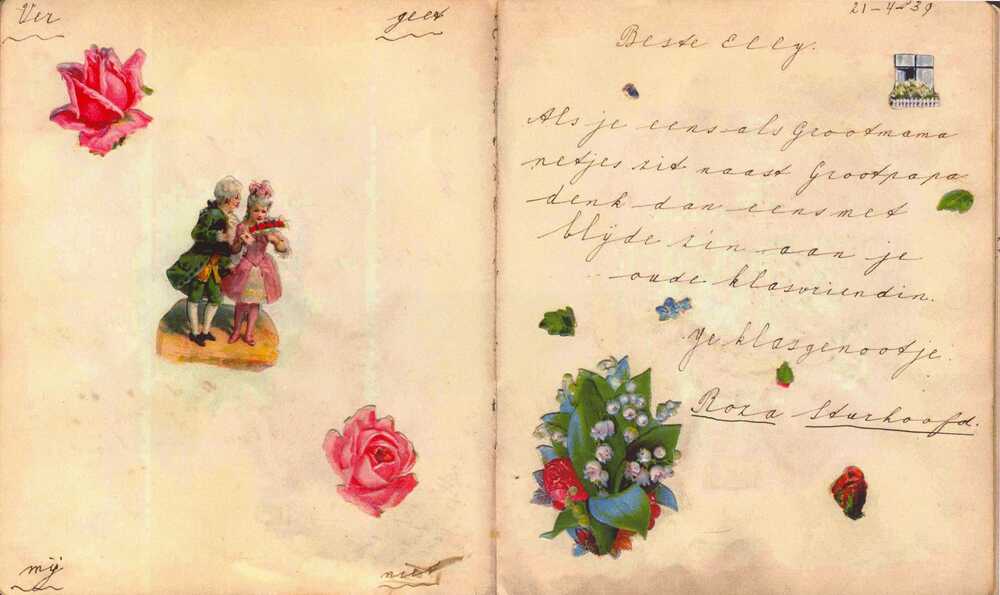 Ver geet
mij niet
21-4-'39
Beste Elly.
Als je eens als Grootmama
netjes zit naast Grootpapa
denk dan eens met
blijde zin aan je
oude klasvriendin.
Je klasgenootje.
Roza Sturhoofd.